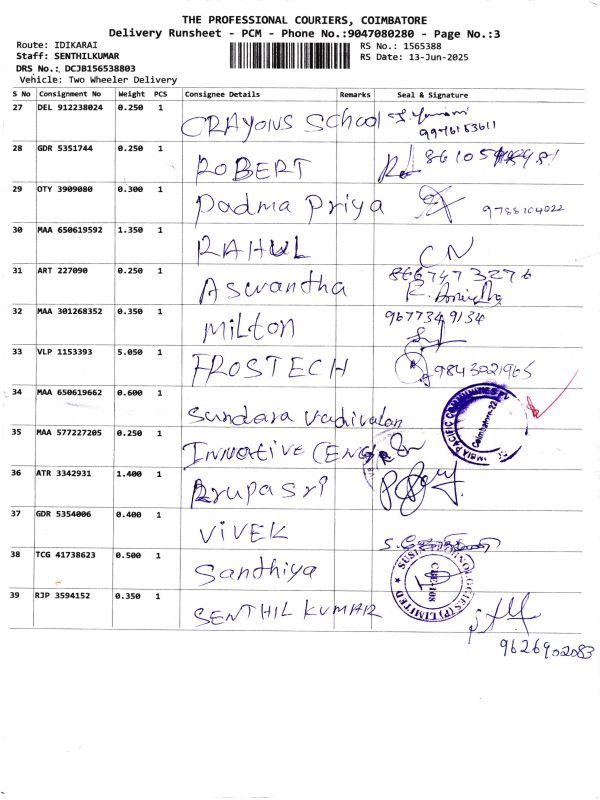 THE PROFESSIONAL COURIERS, COIMBATORE
Delivery Runsheet - PCM - Phone No.:9047080280 - Page No.:3
Route: IDIKARAI RS No.: 1565388
Staff: SENTHILKUMAR RS Date: 13-Jun-2025
DRS No.: DCJB156538803
Vehicle: Two Wheeler Delivery
S No Consignment No Weight PCS Consignee Details Remarks Seal & Signature
27 DEL 912238024 0.250 1 CRAYOIUS SCHOOL
9976153611
28 GDR 5351744 0.250 1 ROBERT
29 OTY 3909080 0.300 1 Padma Priya 9788104022
30 MAA 650619592 1.350 1 RAHUL CN
31 ART 227090 0.250 1 Aswantha 866747 3276
32 MAA 301268352 0.350 1 Milton 967734 9134
33 VLP 1153393 5.050 1 FROSTECH 9843021965
34 MAA 650619662 0.600 1 Sundara Vadivalan
35 MAA 577227205 0.250 1 Innvative CENG
36 ATR 3342931 1.400 1 Arupasri
37 GDR 5354006 0.400 1 VIVEK
38 TCG 41738623 0.500 1 Santhiya
39 RJP 3594152 0.350 1 SENTHIL KUMAR
9626902083